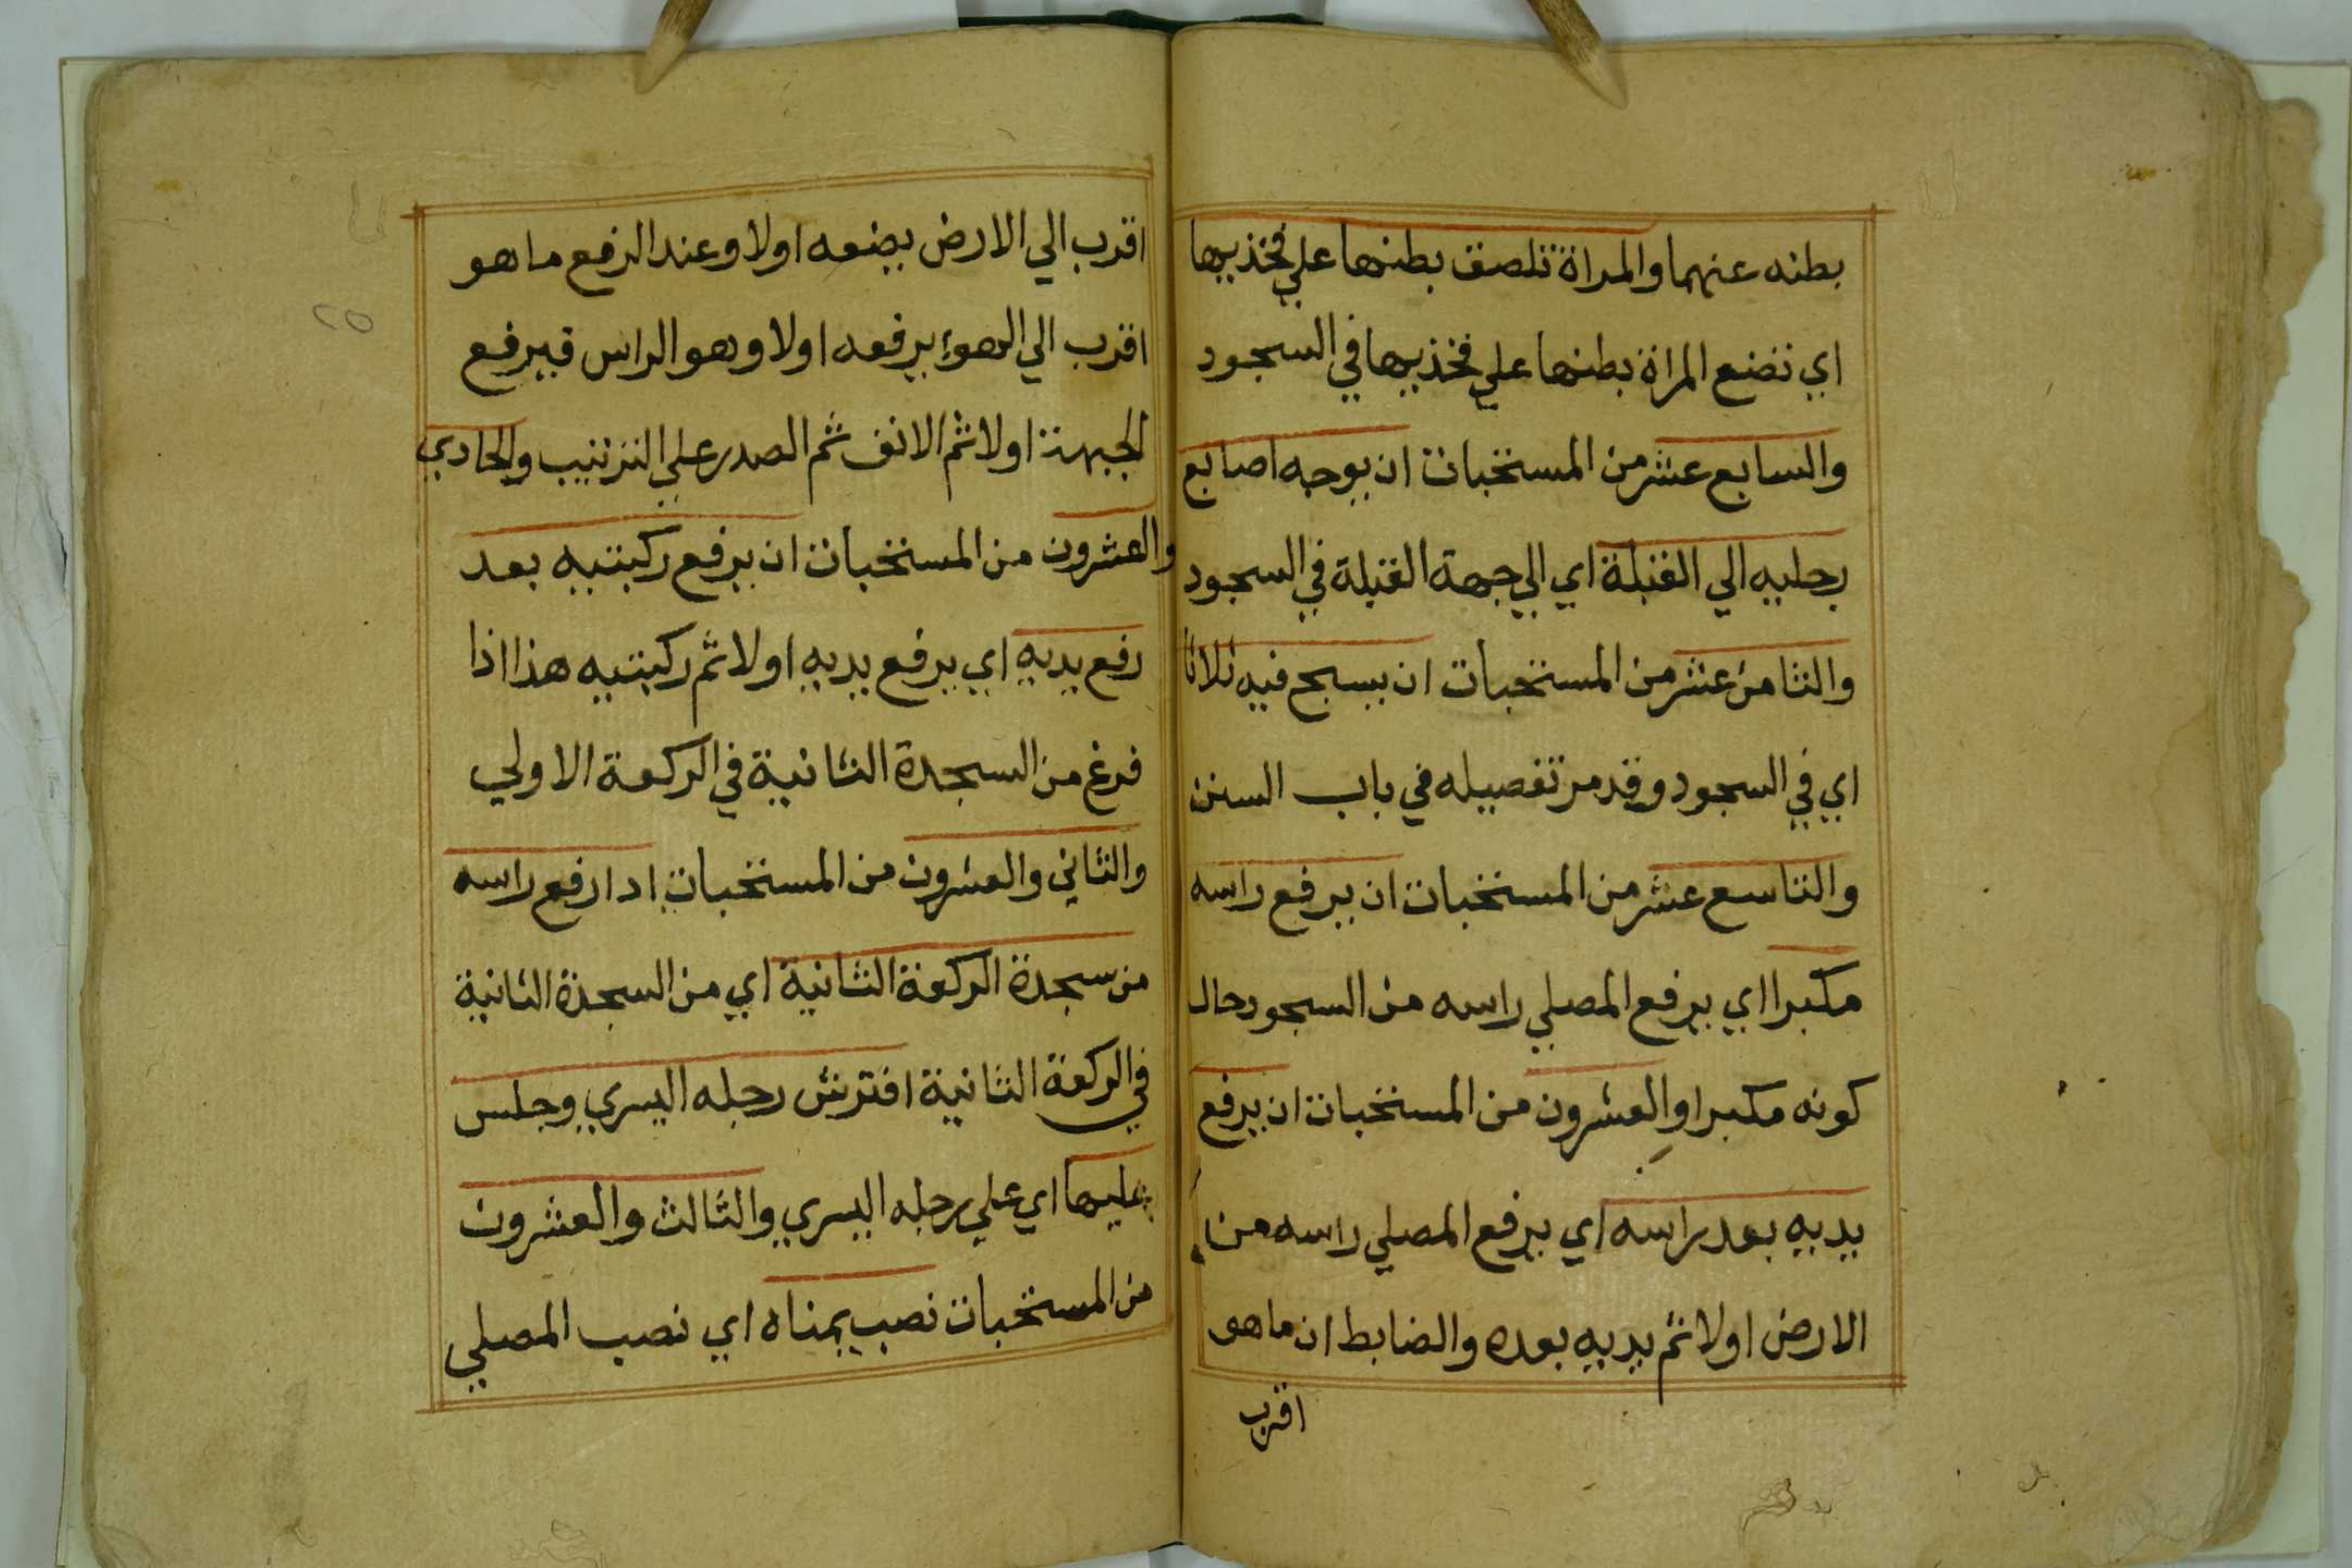 بطنه عنهما والمراة تلصق بطنها علي فخذيها
اي تضع المراة بطنها علي فخذيها في السجود
والسابع عشر من المستحبات ان يوجه اصابع
رجليه الي القبلة اي الي جهة القبلة في السجود
والثامن عشر من المستحبات ان يسبح فيه ثلاثا
اي في السجود وقد مر تفصيله في باب السنن
والتاسع عشر من المستحبات ان يرفع راسه
مكبرا اي يرفع المصلي راسه من السجود حال
كونه مكبرا والعشرون من المستحبات ان يرفع
يديه بعد راسه اي يرفع المصلي راسه من
الارض اولا ثم يديه بعده والضابط ان ما هو
اقرب
اقرب الي الارض يضعه اولا وعند الرفع ما هو
اقرب الي الهوء يرفعه اولا وهو الراس فيرفع
الجبهة اولا ثم الانف ثم الصدر علي الترتيب والحادي
والعشرون من المستحبات ان يرفع ركبتيه بعد
رفع يديه اي يرفع يديه اولا ثم ركبتيه هذا اذا
فرغ من السجدة الثانية في الركعة الاولي
والثاني والعشرون من المستحبات ادا رفع راسه
من سجدة الركعة الثانية اي من السجدة الثانية
في الركعة الثانية افترش رجله اليسري وجلس
عليها اي علي رجله اليسري والثالث والعشرون
من المستحبات نصب يمناه اي نصب المصلي
٢٥